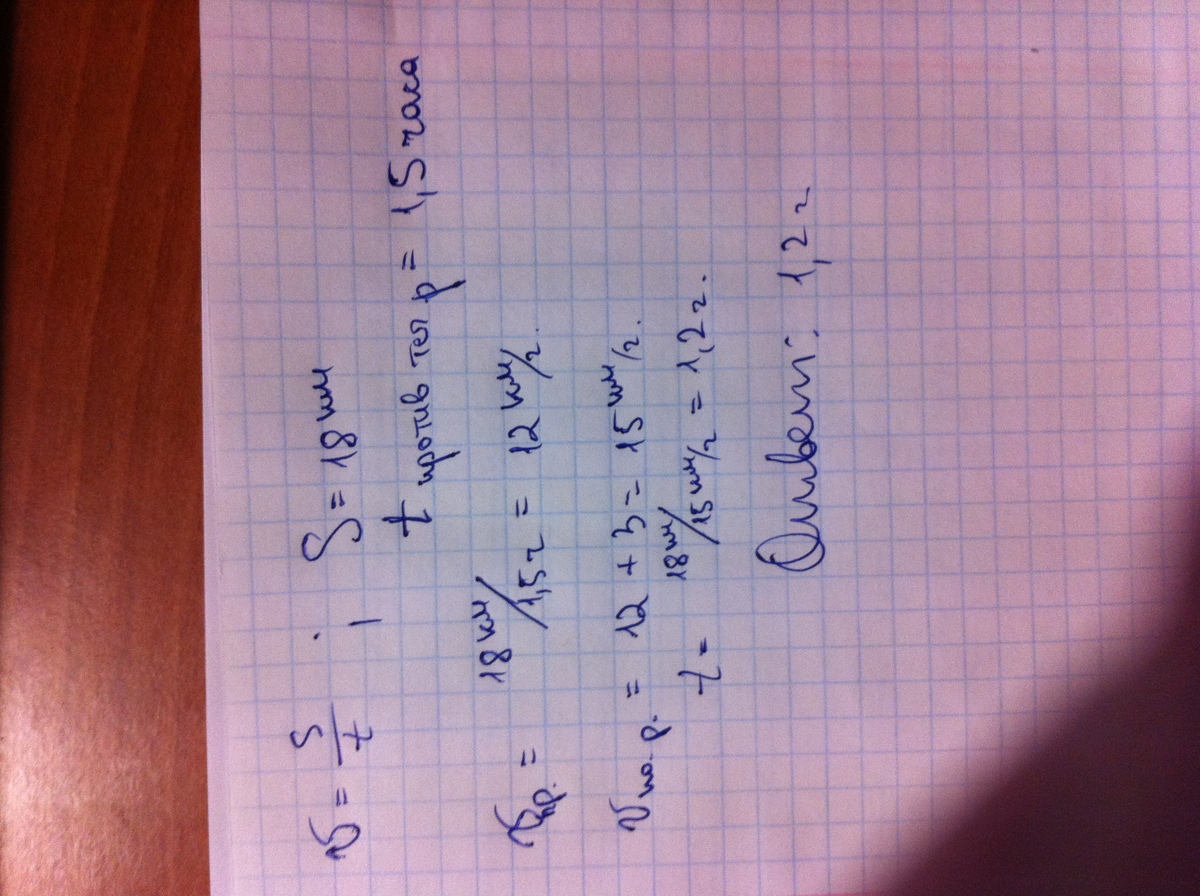 v = S/t ; S = 18 км
t против теч р = 1,5 часа
vпр. = 18 км/1,5 ч = 12 км/ч.
vпо. р. = 12 + 3 = 15 км/ч.
t = 18 км/15 км/ч = 1,2 ч.
Ответ: 1,2 ч